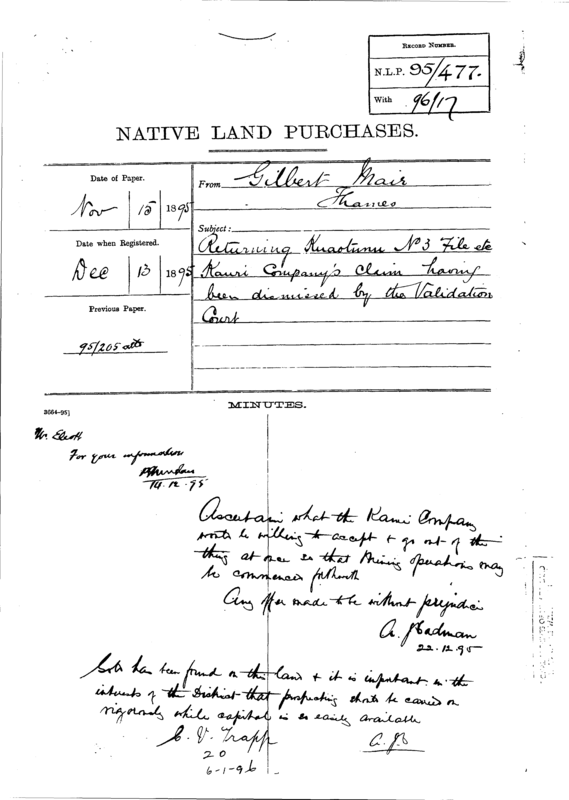 RECORD NUMBER.
N.L.P. 95/477.
With 96/17
NATIVE LAND PURCHASES.
Date of Paper.
Nov 15 1895
From Gilbert Mair
Thames
Subject:
Returning Kuaotunu No 3 File etc
Kauri Company's claim having
been dismissed by the Validation
Court
Date when Registered.
Dec 13 1895
Previous Paper.
95/205 atts
3664-95]
MINUTES.
For your information
14.12.95
Ascertain what the Kauri Company
would be willing to accept & go out of the
thing at once so that Mining operations may
be commenced forthwith
Any offer made to be without prejudice
A. J Cadman
22.12.95
Gold has been found on the land & it is important in the
interests of the District that prospecting should be carried on
vigorously while capital is so easily available
A.J.C
C. V. Trapp
20
6-1-96